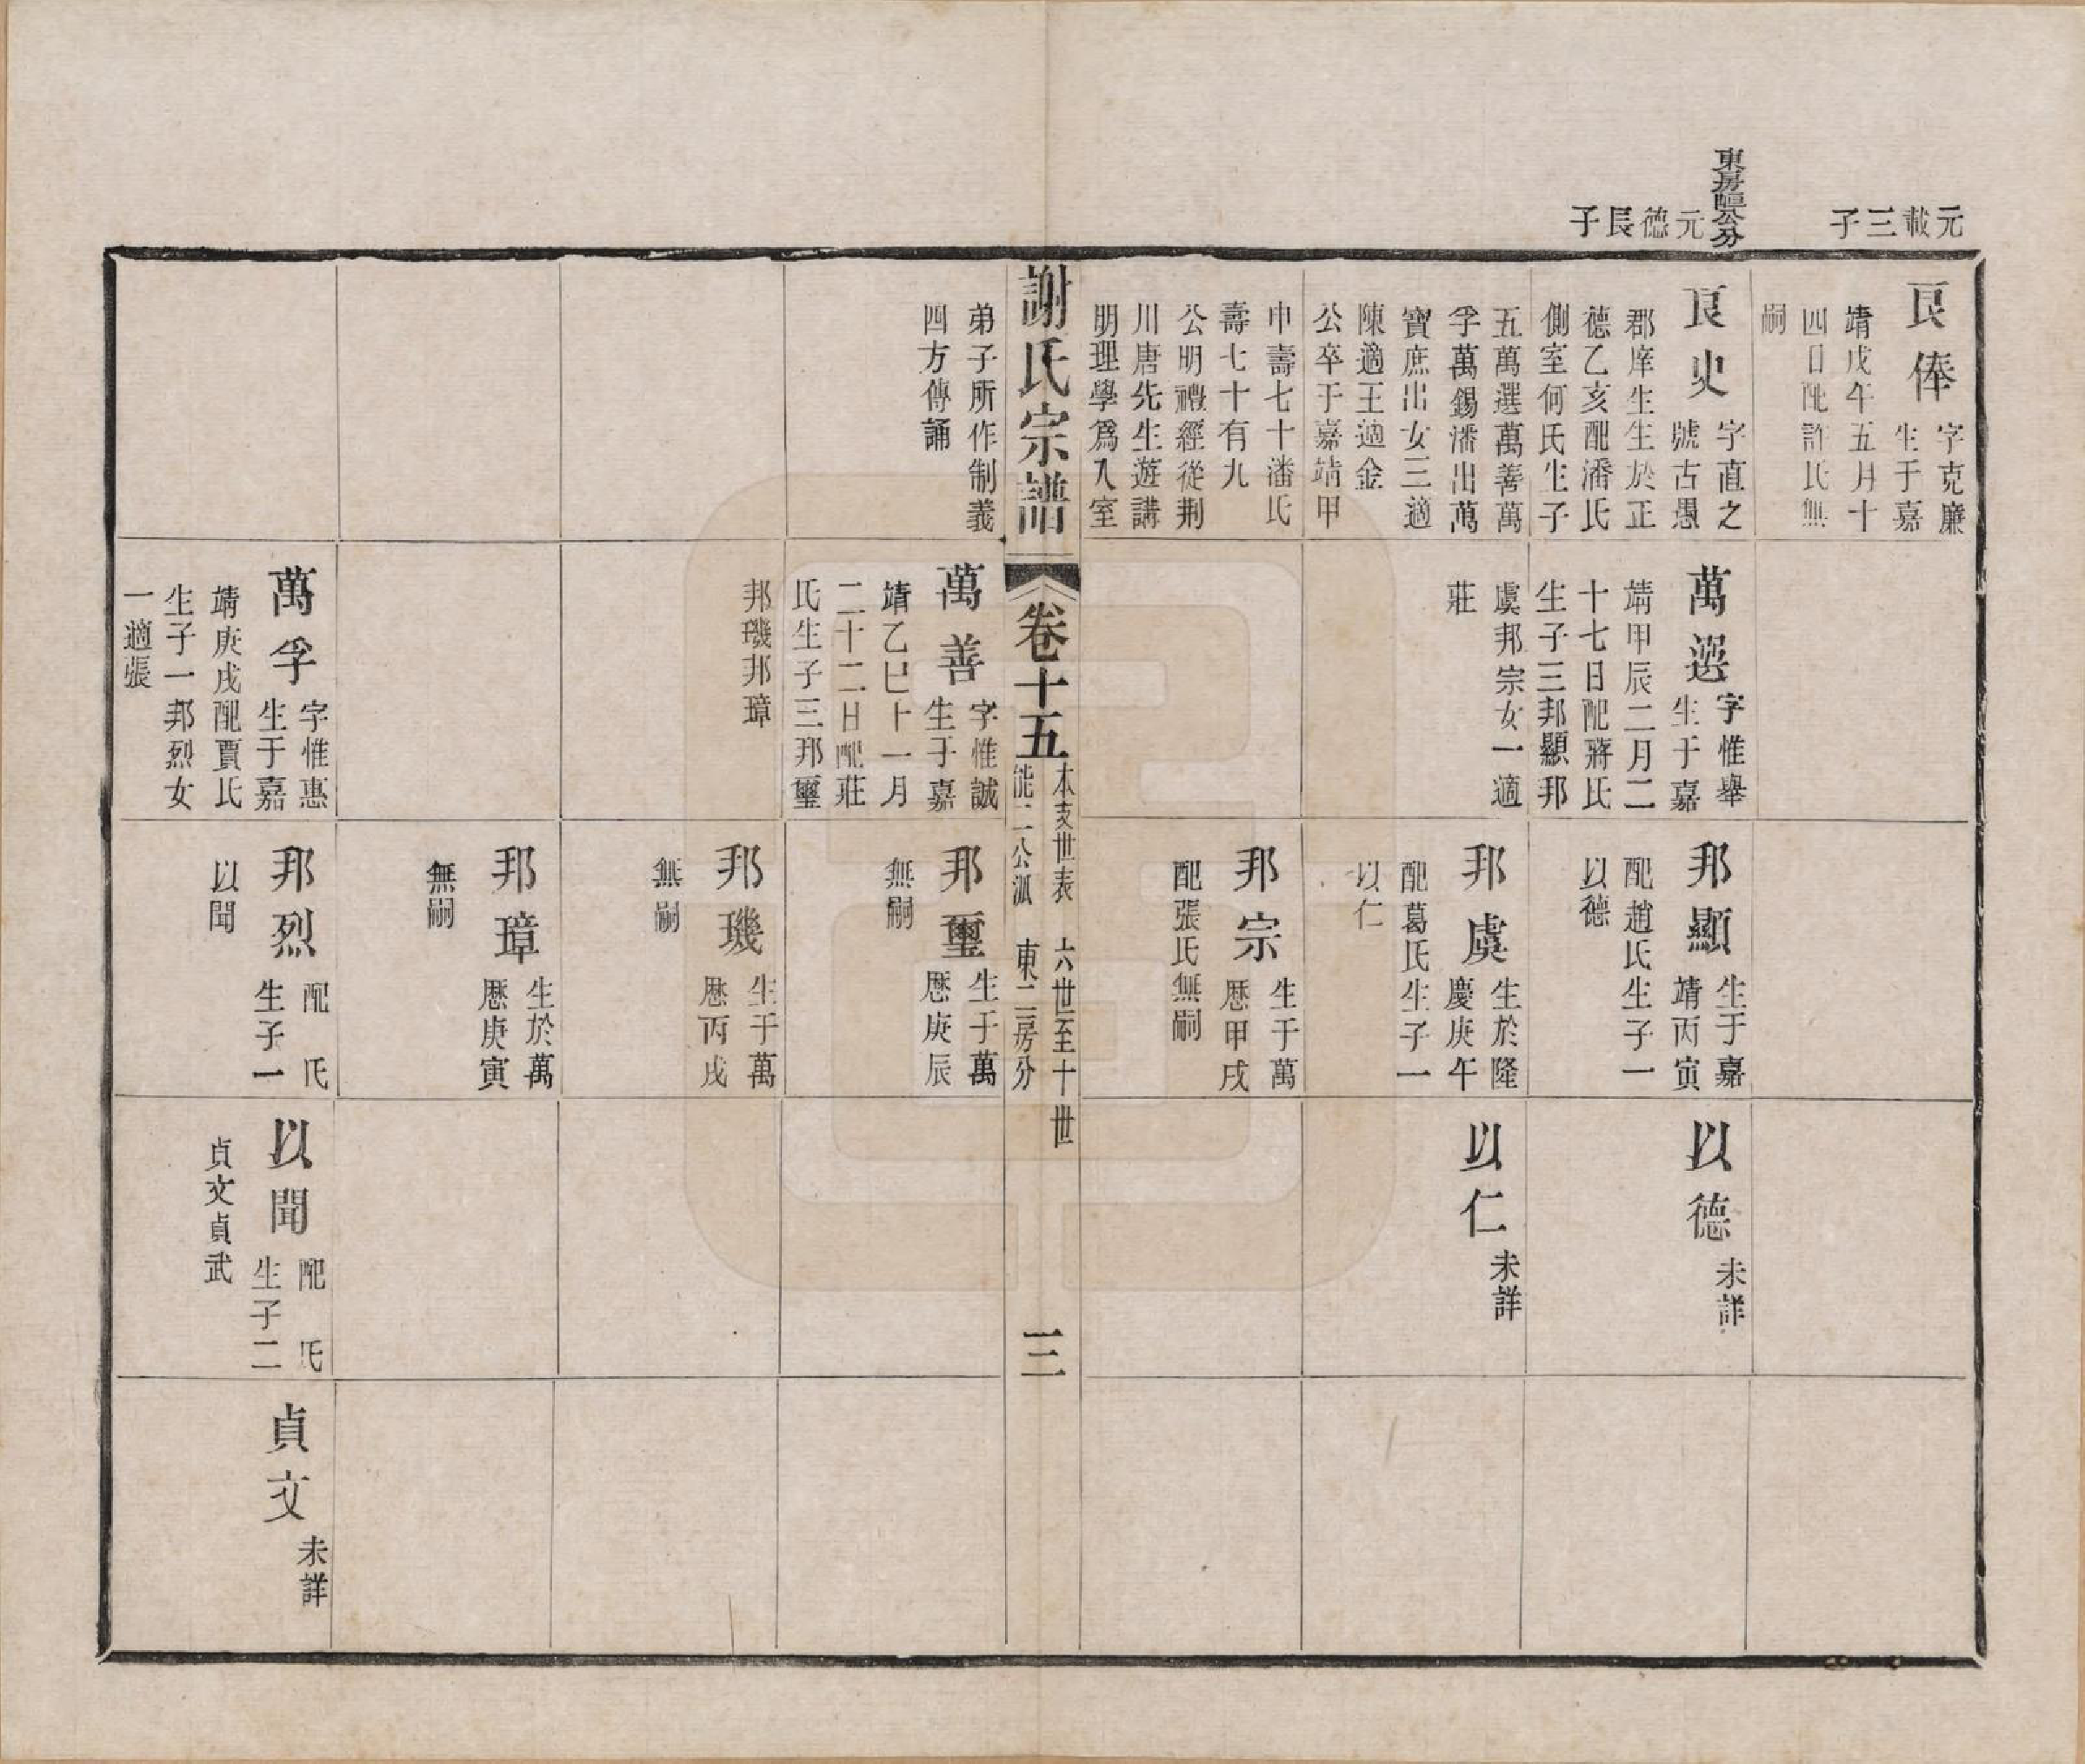 元載三子
東房公分
元德長子
良俸
字克廉
生于嘉
靖戊午五月十
四日配許氏無
嗣
良史
字直之
號古愚
郡庠生生於正
德乙亥配潘氏
側室何氏生子
五萬選萬善萬
孚萬錫潘出萬
寶庶出女三適
陳適王適金
公卒于嘉靖甲
申壽七十潘氏
壽七十有九
公明禮經從荆
川唐先生遊講
明理學爲入室
萬選
字惟舉
生于嘉
靖甲辰二月二
十七日配蔣氏
生子三邦顯邦
虞邦宗女一適
莊
邦顯
生于嘉
靖丙寅
配趙氏生子一
以德
邦虞
生於隆
慶庚午
配葛氏生子一
以仁
邦宗
生于萬
歷甲戌
配張氏無嗣
以德
未詳
以仁
未詳
謝氏宗譜
卷十五
本支世表 六世至十世
能二公派 東二房分
三
弟子所作制義
四方傳誦
萬善
字惟誠
生于嘉
靖乙巳十一月
二十二日配莊
氏生子三邦璽
邦璣邦璋
萬孚
字惟惠
生于嘉
靖庚戌配賈氏
生子一邦烈女
一適張
邦璽
生于萬
歷庚辰
無嗣
邦璣
生于萬
歷丙戌
無嗣
邦璋
生於萬
歷庚寅
無嗣
邦烈
配 氏
生子一
以聞
以聞
配 氏
生子二
貞文貞武
貞文
未詳